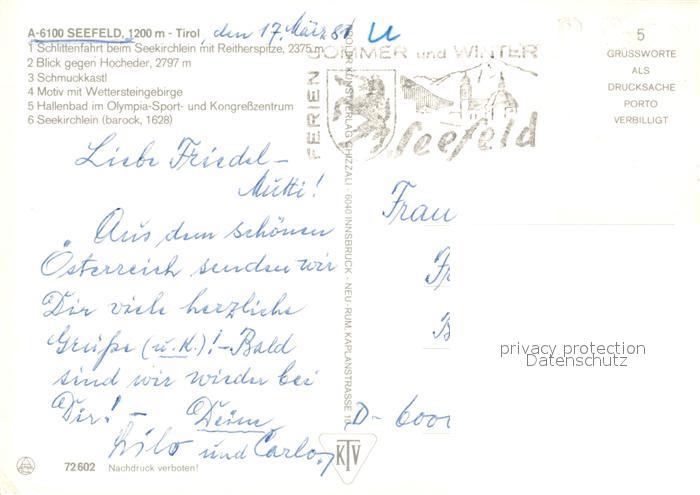 A-6100 SEEFELD, 1200 m - Tirol
den 17. März 81
1 Schlittenfahrt beim Seekirchlein mit Reitherspitze, 2375 m
2 Blick gegen Hocheder, 2797 m
3 Schmuckkastl
4 Motiv mit Wettersteingebirge
5 Hallenbad im Olympia-Sport- und Kongreßzentrum
6 Seekirchlein (barock, 1628)
FERIEN
SOMMER und WINTER
Seefeld
5
GRUSSWORTE
ALS
DRUCKSACHE
PORTO
VERBILLIGT
Liebe Friedel-
Mutti!
Aus dem schönen
Österreich senden wir
Dir viele herzliche
Grüße (u. K.)! - Bald
sind wir wieder bei
Dir! - Deine
Lilo und Carlo
KUNSTVERLAG CHIZZALI · 6040 INNSBRUCK · NEU-RUM, KAPLANSTRASSE
Frau
Fr
B
D-600
privacy protection
Datenschutz
KTV
72602 Nachdruck verboten!